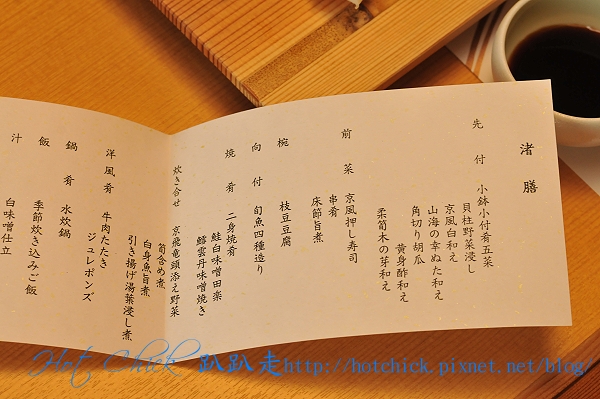 渚膳
先付 小鉢小付肴五菜
貝柱野菜浸し
京風白和え
山海の幸ぬた和え
角切り胡瓜
黄身酢和え
柔筍木の芽和え
前菜 京風押し寿司
串肴
床節旨煮
椀 枝豆豆腐
向付 旬魚四種造り
焼肴 二身焼肴
鮭白味噌田楽
鱈雲丹味噌焼き
炊き合せ 京飛竜頭添え野菜
筍含め煮
白身魚旨煮
引き揚げ湯葉浸し煮
洋風肴 牛肉たたき
ジュレポンズ
鍋肴 水炊鍋
飯 季節炊き込みご飯
汁 白味噌仕立
Hot Chick 趴趴走http://hotchick.pixnet.net/blog/